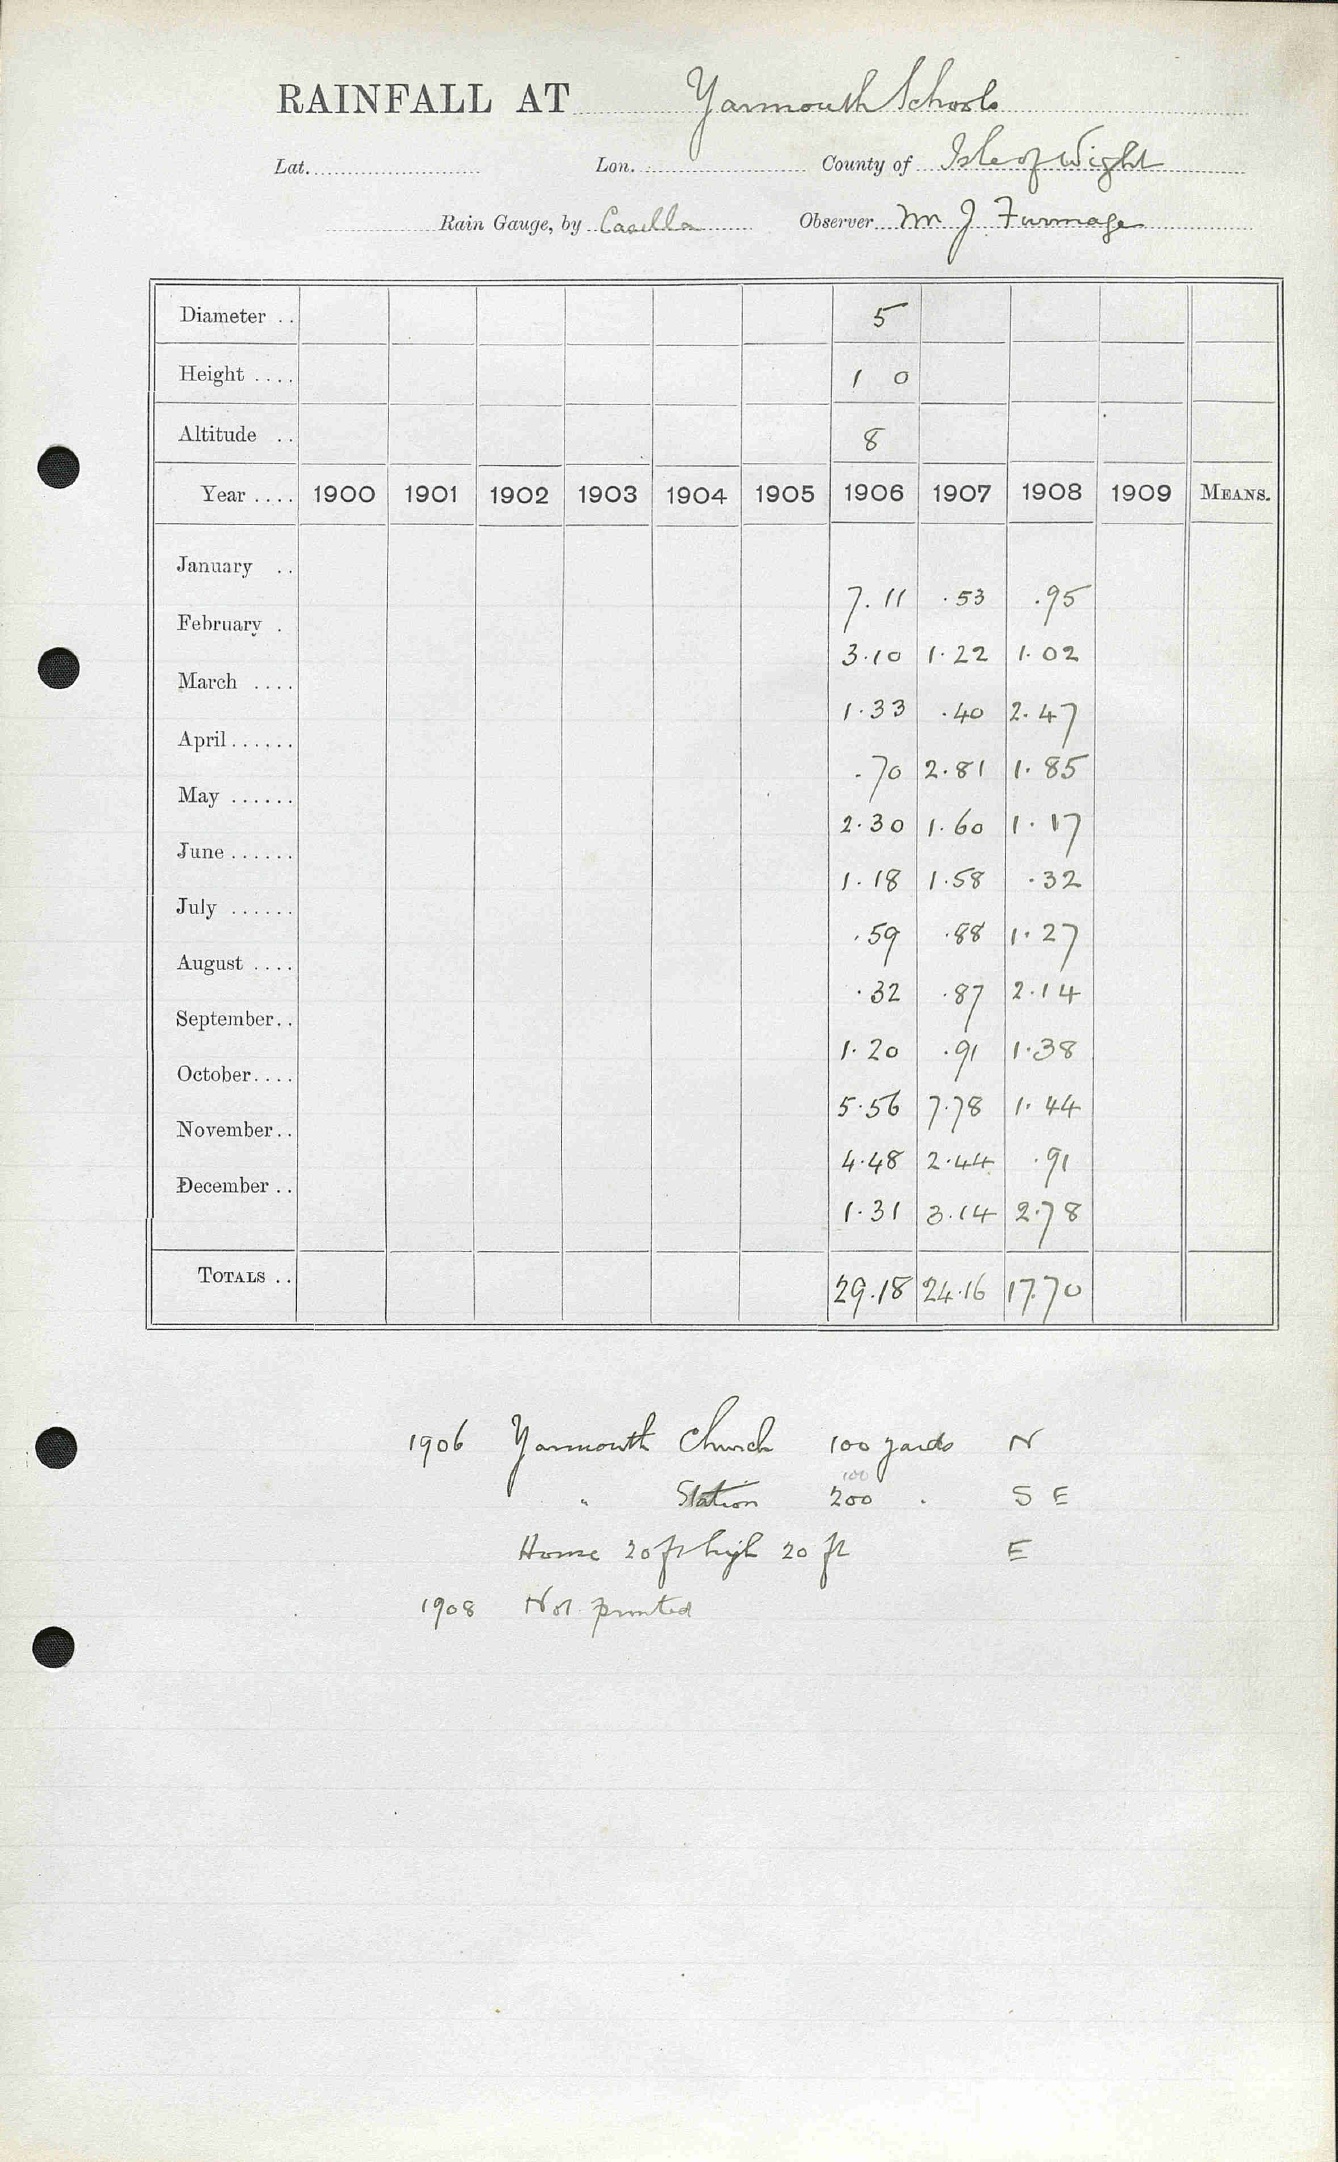 RAINFALL AT Yarmouth Schools
Lat. Lon. County of Isle of Wight
Rain Gauge, by Casella Observer Mr J. Furmage
Diameter .. 5
Height .... 1 0
Altitude .. 8
Year .... 1900 1901 1902 1903 1904 1905 1906 1907 1908 1909 MEANS.
January .. 7.11 .53 .95
February . 3.10 1.22 1.02
March .... 1.33 .40 2.47
April ...... .70 2.81 1.85
May ...... 2.30 1.60 1.17
June ...... 1.18 1.58 .32
July ...... .59 .88 1.27
August .... .32 .87 2.14
September.. 1.20 .91 1.38
October.... 5.56 7.78 1.44
November.. 4.48 2.44 .91
December .. 1.31 3.14 2.78
TOTALS .. 29.18 24.16 17.70
1906 Yarmouth Church 100 yards N
100
" Station 200 . S E
House 20 ft high 20 ft E
1908 Not printed